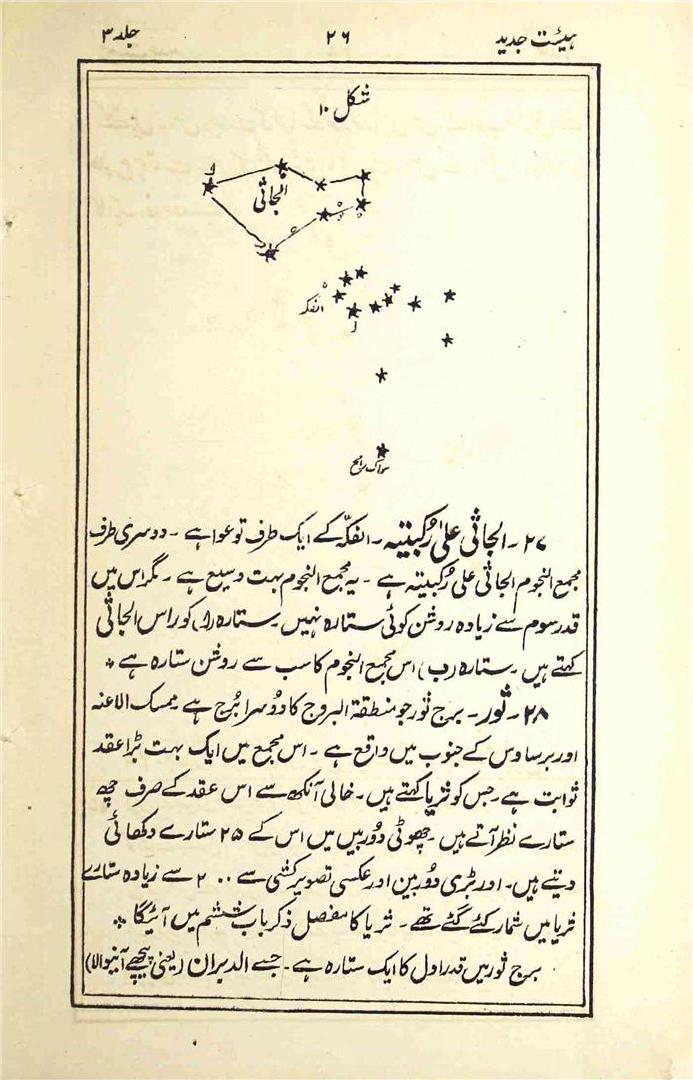 ہیئت جدید
۲۶
جلد ۳
شکل ۱۰
الجاثی
الفکہ
سماک رامح
۲۷۔ الجاثی علیٰ رُکبتیہ۔ الفکّہ کے ایک طرف تو عوا ہے۔ دوسری طرف
مجمع النجوم الجاثی علی رُکبتیہ ہے۔ یہ مجمع النجوم بہت وسیع ہے۔ مگر اس میں
قدر سوم سے زیادہ روشن کوئی ستارہ نہیں۔ ستارہ (ا) کو راس الجاثی
کہتے ہیں۔ ستارہ (ب) اس مجمع النجوم کا سب سے روشن ستارہ ہے *
۲۸۔ ثور۔ برج ثور جو منطقۃ البروج کا دوسرا بُرج ہے ممسک الاعنہ
اور برساوس کے جنوب میں واقع ہے۔ اس مجمع میں ایک بہت بڑا عقد
ثوابت ہے۔ جس کو ثریا کہتے ہیں۔ خالی آنکھ سے اس عقد کے صرف چھ
ستارے نظر آتے ہیں۔ چھوٹی دُوربیں میں اس کے ۲۵ ستارے دکھائی
دیتے ہیں۔ اور بڑی دُوربین اور عکسی تصویر کشی سے ۲۰۰ سے زیادہ ستارے
ثریا میں شمار کئے گئے تھے۔ ثریا کا مفصل ذکر باب ششم میں آئیگا *
برج ثور میں قدر اول کا ایک ستارہ ہے۔ جسے الدبران (یعنی پیچھے آنیوالا)